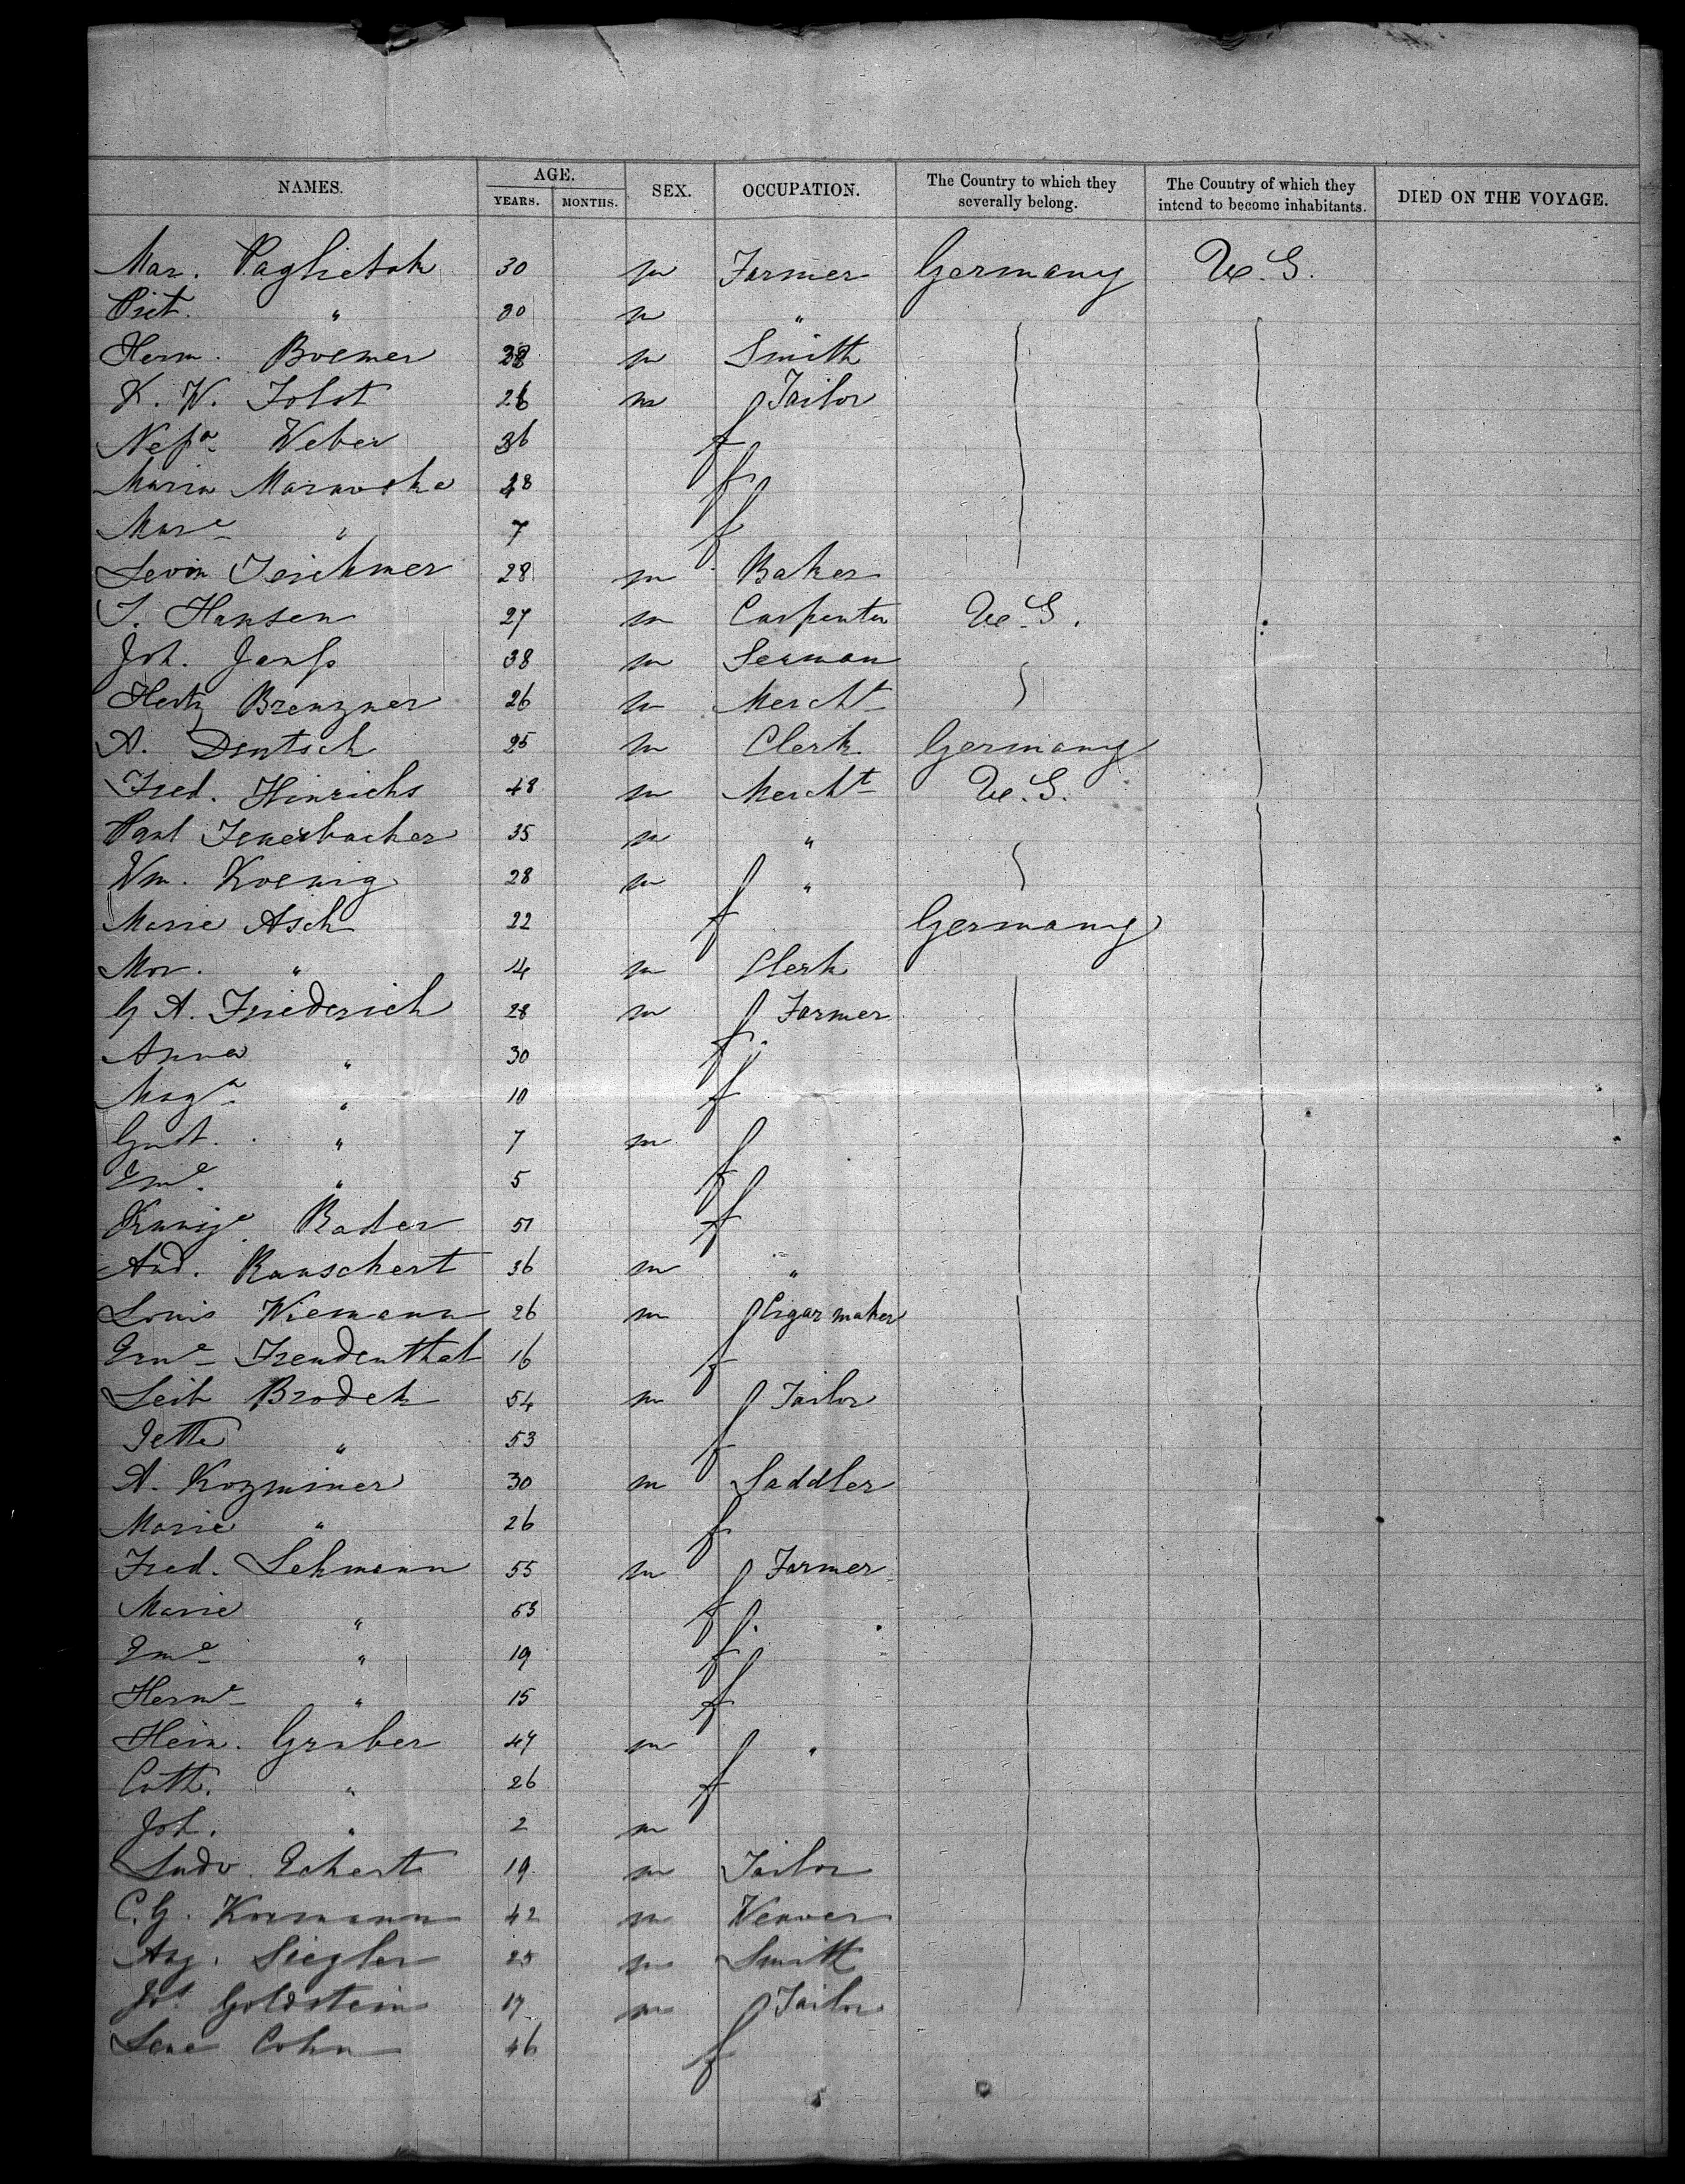 NAMES. AGE. YEARS. MONTHS. SEX. OCCUPATION. The Country to which they severally belong. The Country of which they intend to become inhabitants. DIED ON THE VOYAGE.
Mar. 30 m Farmer Germany U.S.
" m "
Herm. Boemer m Smith
K. W. Jobst 26 m Tailor
Weber 36 f
Maria f
Mare " 7 f
28 m Baker
Hansen 27 m Carpenter U.S.
Joh. Janss 38 m Seaman
Brenzner 26 m Mercht
A. Deutsch 25 m Clerk Germany
Fred. Hinrichs 48 m Mercht U.S.
Paul Feuerbacher 35 m "
Wm. Koenig 28 m "
Marie Asch 22 f Germany
Mor. " 14 m Clerk
G A. Friederich 28 m Farmer
Anna " 30 f
Maga " 10 f
Gust. " 7 m
Eme. " 5 f
Kunige. Bader 51 f
And. Rauschert 36 m "
Louis Wiemann 26 m Cigar maker
Erne Freudenthal 16 f
Leib Brodek 54 m Tailor
Jette " 53 f
A. Kozminer 30 m Saddler
Marie " 26 f
Fred. Lehmann 55 m Farmer
Marie " 53 f
Eme " 19 f
Herme " 15 f
Hein. Gruber 47 m "
Cath. " 26 f
Joh. " 2 m
Ludv. Eckert 19 m Tailor
C. G. Kormann 42 m Weaver
Aug. Siegler 25 m Smith
Goldstein 17 m Tailor
Lene Cohn 46 f